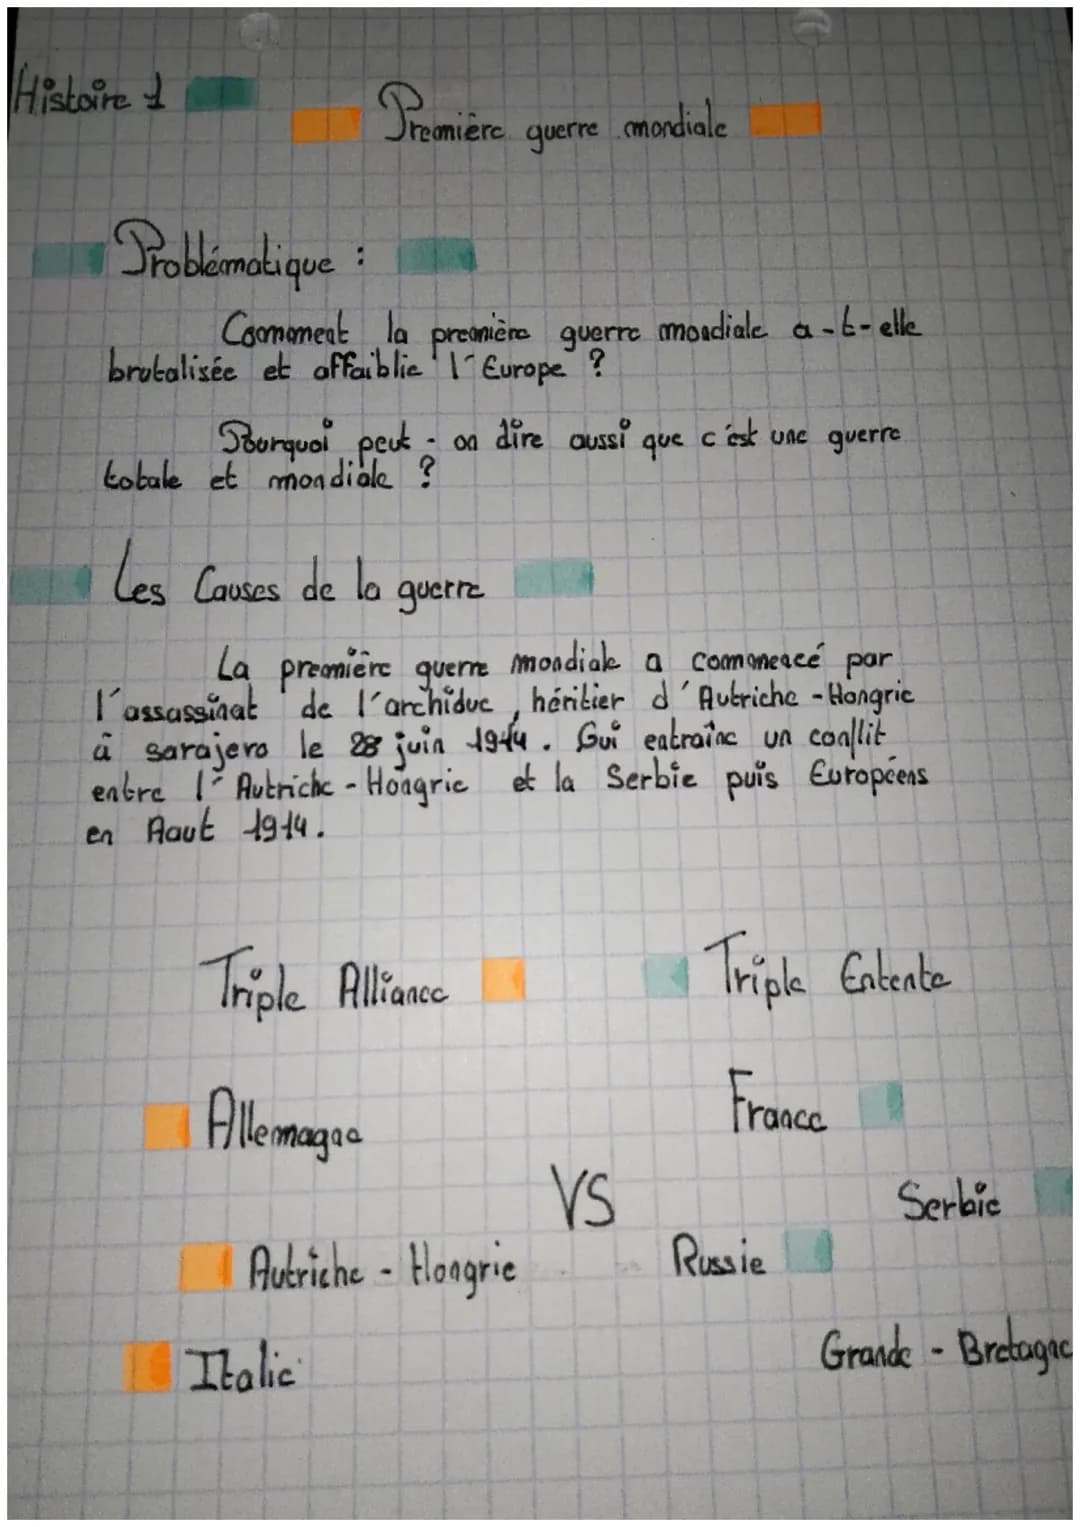 Histoire 1
Première guerre mondiale
Problématique :
Comment la première guerre mondiale a-t-elle
brutalisée et affaiblie l'Europe ?
Pourquoi peut-on dire aussi que c'est une guerre
totale et mondiale ?
Les Causes de la guerre
La première guerre mondiale a commencé par
l'assassinat de l'archiduc, héritier d'Autriche-Hongrie
à sarajero le 28 juin 1914. Qui entraîne un conflit
entre l'Autriche-Hongrie et la Serbie puis Européens
en Aout 1914.
Triple Alliance
Triple Entente
Allemagne
France
VS
Serbie
Autriche-Hongrie
Russie
Italie
Grande-Bretagne